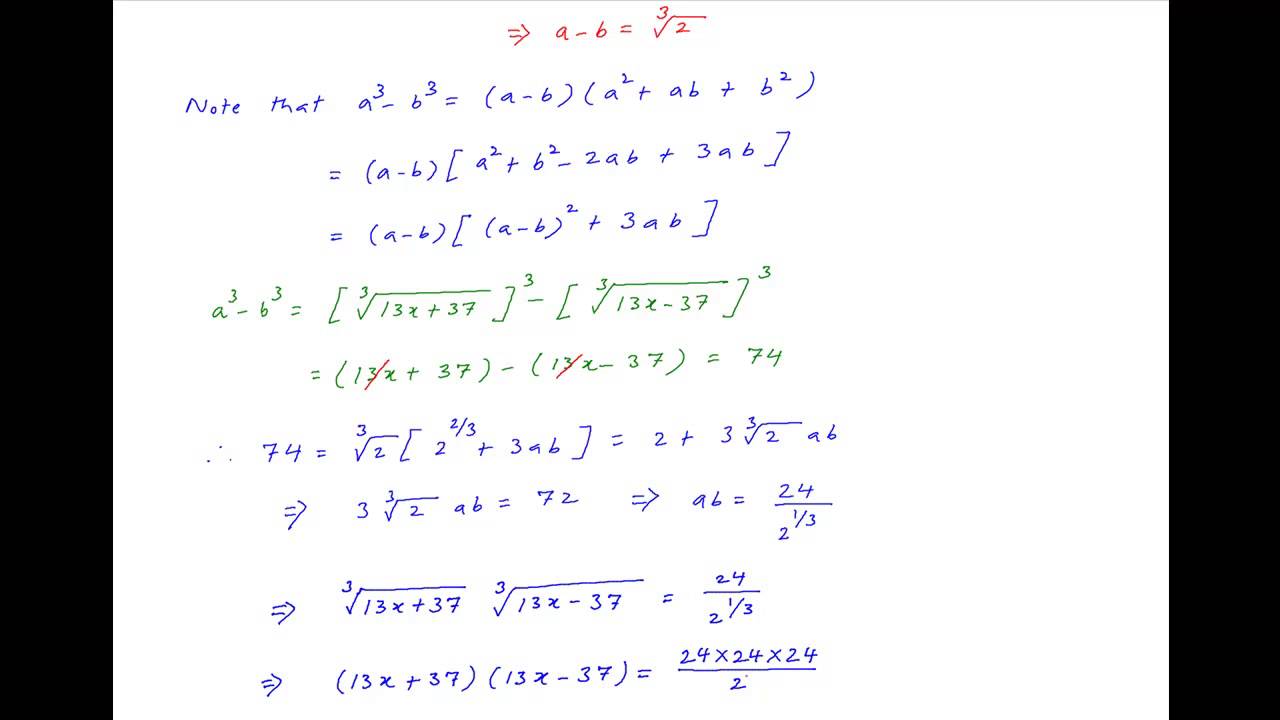 ⇒ a-b = ∛2
Note that a³- b³ = (a-b)(a²+ ab + b²)
= (a-b)[a²+ b²- 2ab + 3ab]
= (a-b)[(a-b)² + 3ab]
a³- b³ = [∛(13x+37)]³ - [∛(13x-37)]³
= (13x+ 37) - (13x- 37) = 74
∴ 74 = ∛2[2^(2/3) + 3ab] = 2 + 3∛2 ab
⇒ 3∛2 ab = 72 ⇒ ab = 24/2^(1/3)
⇒ ∛(13x+37) ∛(13x-37) = 24/2^(1/3)
⇒ (13x+37)(13x-37) = (24×24×24)/2